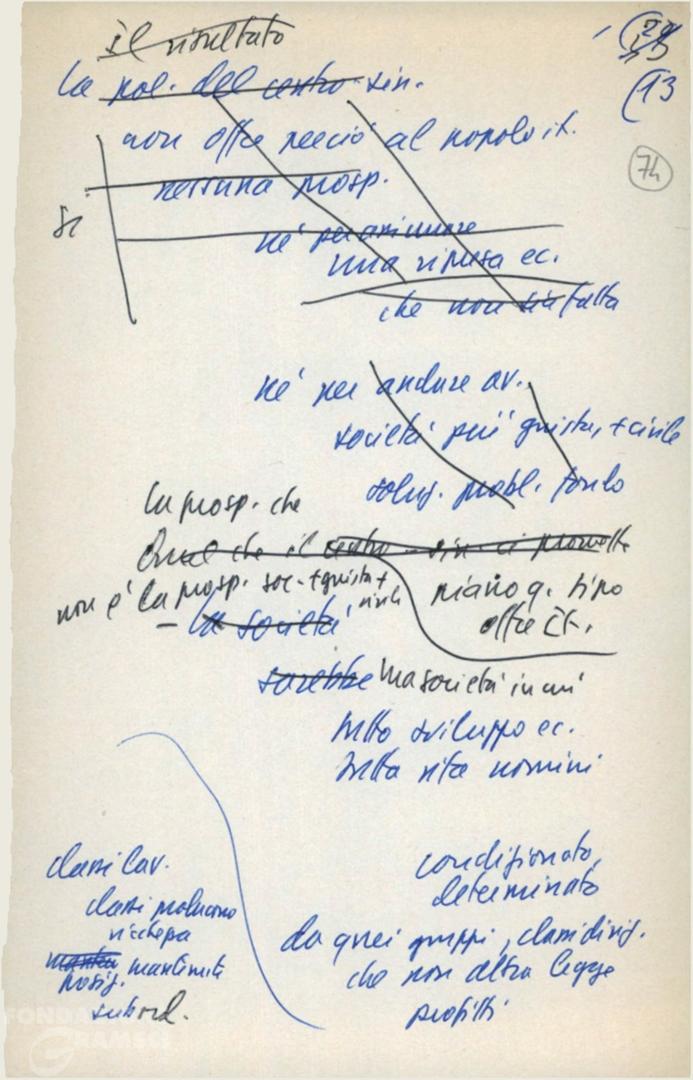 il risultato
(29
15
(13
74
la pol. del centro-sin.
non offre perciò al popolo it.
nessuna prosp.
si
né per assicurare
una ripresa ec.
che non sia fatta
né per andare av.
società più giusta, + civile
soluz. probl. fondo
la prosp. che
Quel che il centro-sin. ci promette
non è la prosp. soc. + giusta +
civile
piano q. tipo
offre
– la società
sarebbe ma società in cui
tutto sviluppo ec.
tutta vita uomini
classi lav.
classi producono
ricchezza
mantenute
posiz.
subord.
condizionato,
determinato
da quei gruppi, classi dirig.
che non altra legge
profitti
FONDAZIONE
GRAMSCI